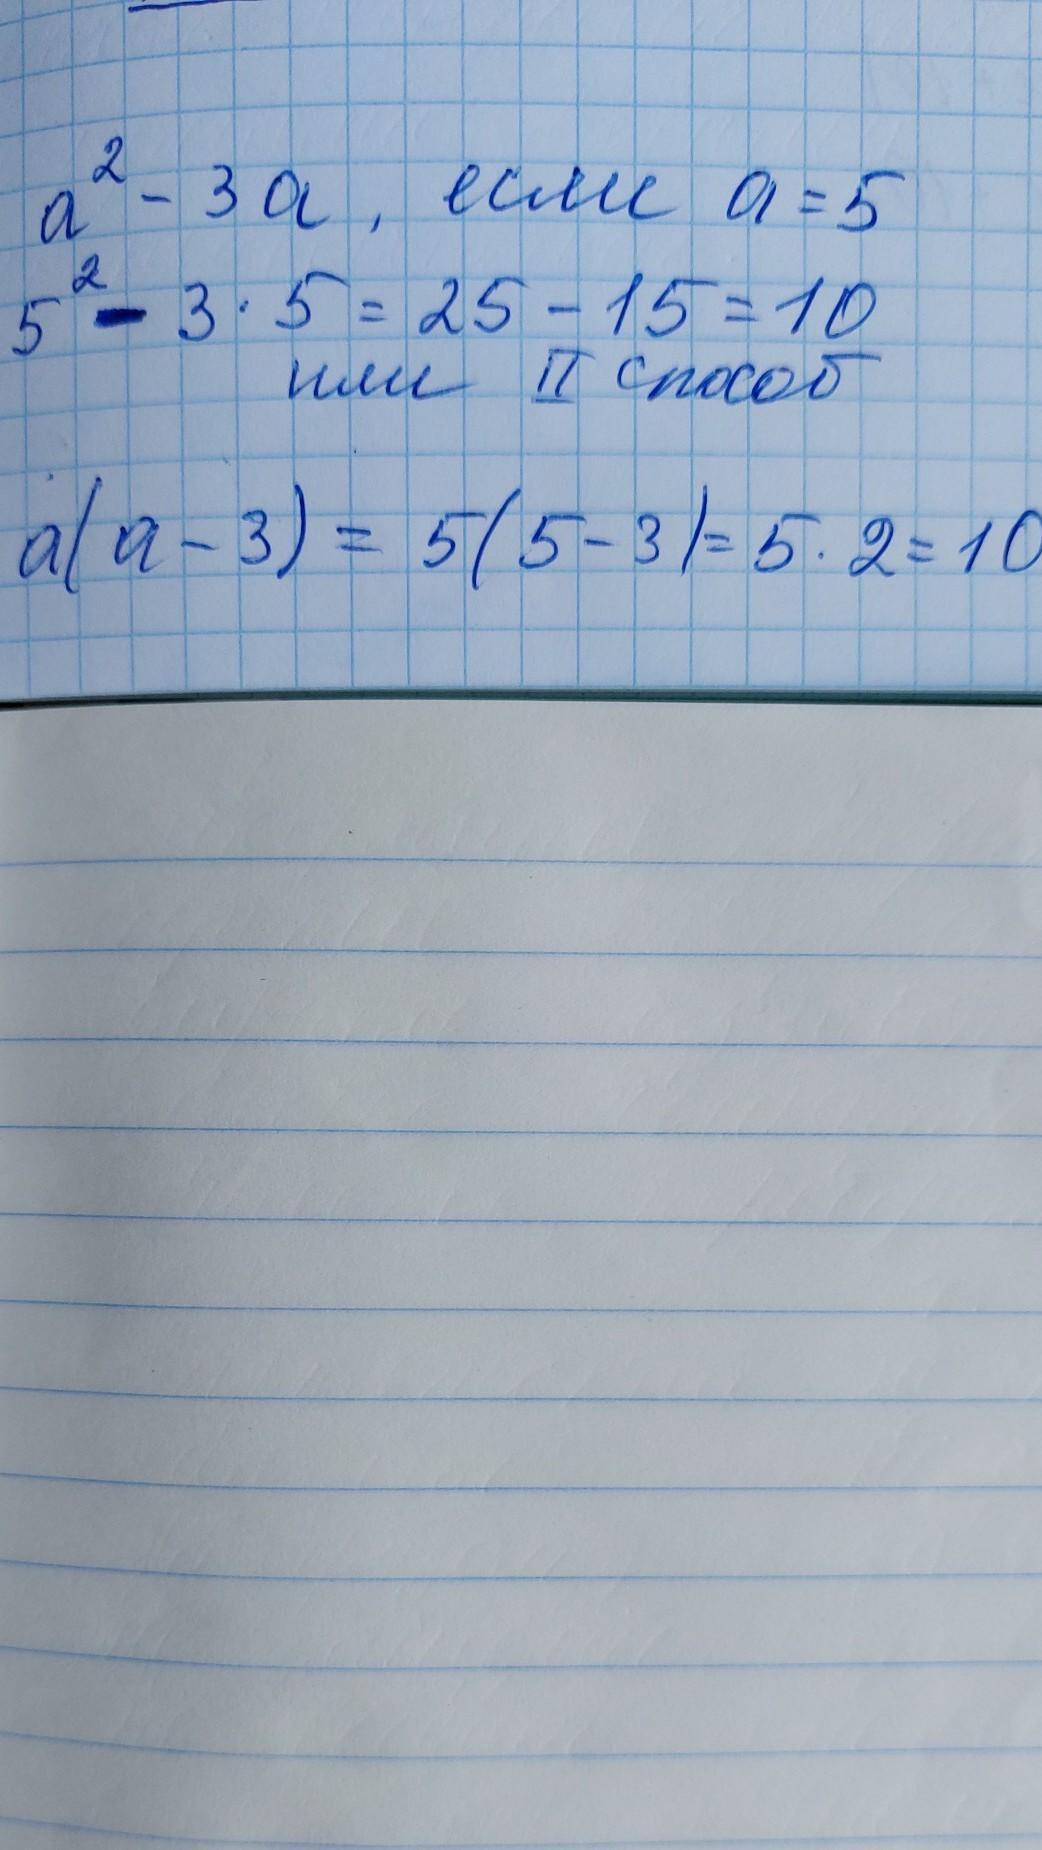 a² - 3a, если a = 5
5² - 3 · 5 = 25 - 15 = 10
или II способ
a(a - 3) = 5(5 - 3) = 5 · 2 = 10